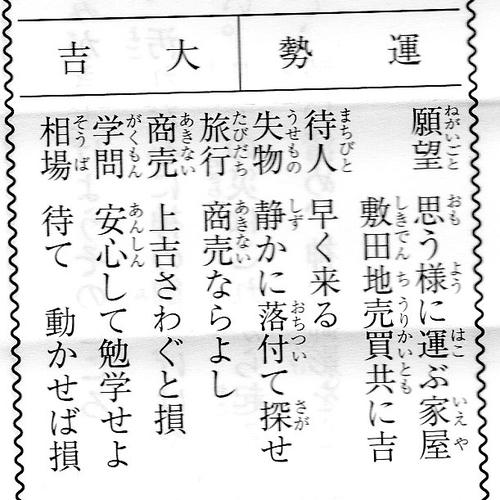 運勢 大吉
願望 思う様に運ぶ家屋
敷田地売買共に吉
待人 早く来る
失物 静かに落付て探せ
旅行 商売ならよし
商売 上吉さわぐと損
学問 安心して勉学せよ
相場 待て 動かせば損
ねがいごと おも よう はこ いえ や
しきでん ち うりかいとも
まちびと
うせもの しず おちつい さが
たびだち あきない
あきない
がくもん あんしん
そう ば